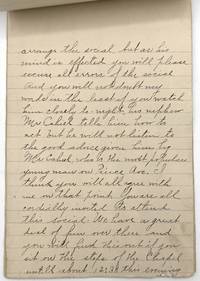 arrange the social but as his
mind is effected you will please
excuse all errors of the social
And you will not doubt my
words in the least if you watch
him closely to-night, his nephew
Mr Cahill tells him how to
act but he will not listen to
the good advice given him by
Mr Cahill, who is the most populare
young man on Rice Ave. I
think you will all agree with
me on that point. You are all
cordially invited to attend
this social. We have a great
deal of fun over there and
you will find this out if you
sit on the steps of the Chapel
until about 12:30 this evening